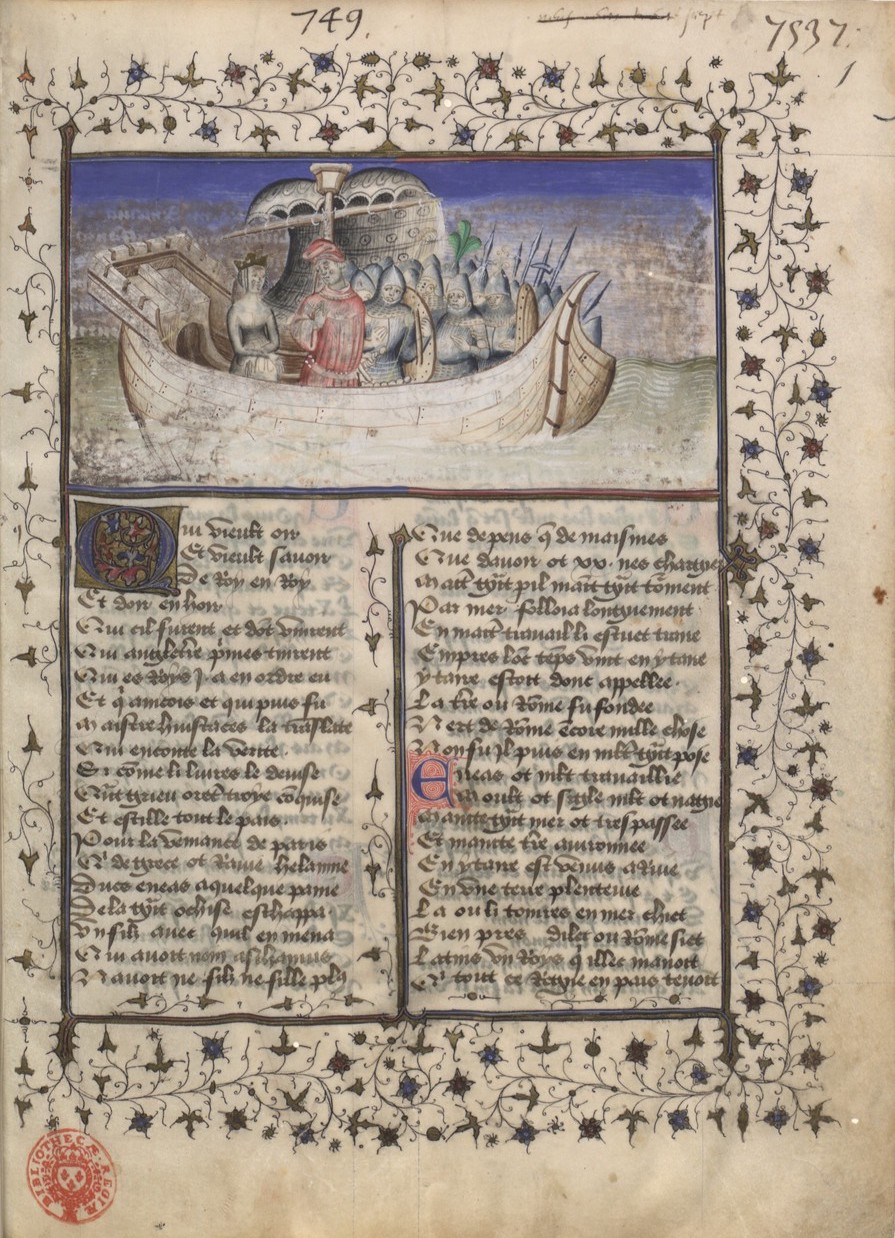 749.
7537.
1
Qui vieult oir
Et vieult savoir
De Roy en Roy
Et doir en hoir
Qui cil furent et dot vinrent
Qui angletre pmes tinrent
Qui es Roys j a en ordre eu
Et q ancois et qui puis fu
Maistre huistaces la traslate
Qui en conte la verite
Si come li livres le devise
Qut grieu oret troye coquise
Et essille tout le pais.
Pour la vemance de paris
Q de grece ot Ravie helainne
Dues eneas a quelque paine
De la tgut ochise eschappa.
Un filz avec quil en mena
Qui avoit nom aschanius
N avoit ne filz ne fille plus
Que de pens q de maismes
Que davoir ot xx. nes chargies
Par mer folloia longuement
En maite travail li estuet traire
Empres lonc teps vint en ytaire
ytaire estoit dont appellee.
La tre ou Rome fu fondee
Nert de Rome ecore mille chose
Non fu jl puis en mlt tgut pose
Eneas ot mlt travaillie
Moult ot sigle mlt ot nagie
Mainte tgut mer ot trespassee
Et mainte tre avironnee
En ytaire est venus a rive
En une terre plentive
La ou li toivres en mer chiet
Bien pres dilec ou Rome siet
Latins un Roys q illec manoit
Q tout ce Regne en pais tenoit
BIBLIOTHECÆ REGIÆ